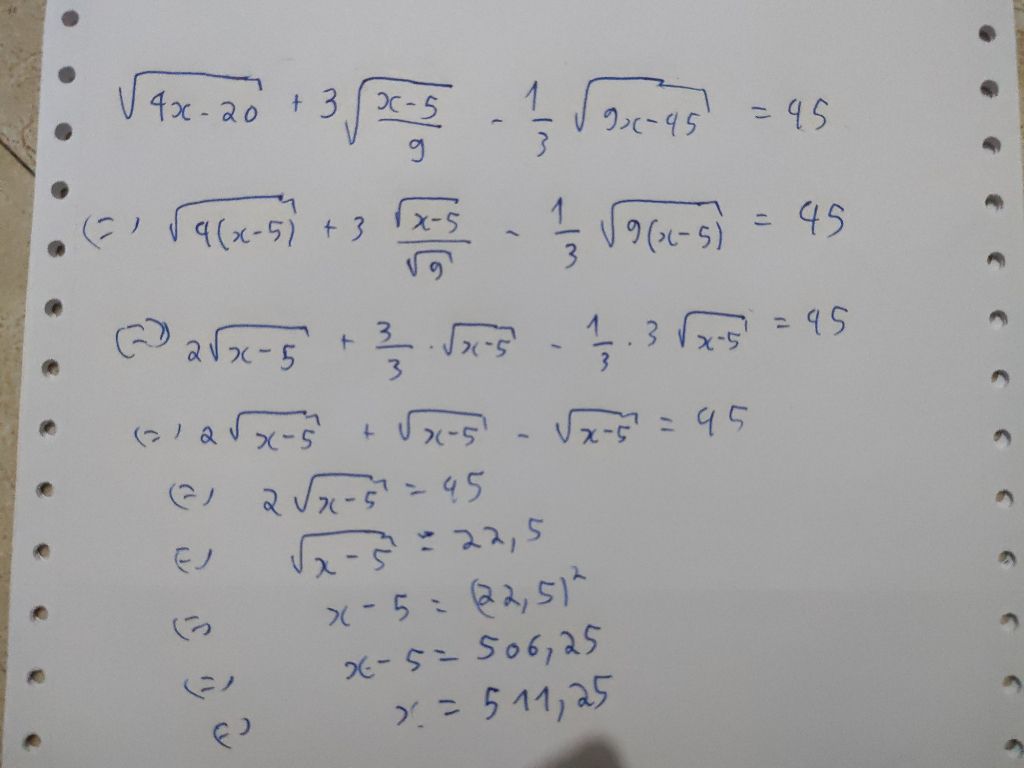 √(4x-20) + 3√((x-5)/9) - 1/3 √(9x-45) = 45
(=) √(4(x-5)) + 3 √(x-5)/√9 - 1/3 √(9(x-5)) = 45
(=) 2√(x-5) + 3/3 . √(x-5) - 1/3 . 3 √(x-5) = 45
(=) 2√(x-5) + √(x-5) - √(x-5) = 45
(=) 2√(x-5) = 45
(=) √(x-5) = 22,5
(=) x-5 = (22,5)²
(=) x-5 = 506,25
(=) x = 511,25